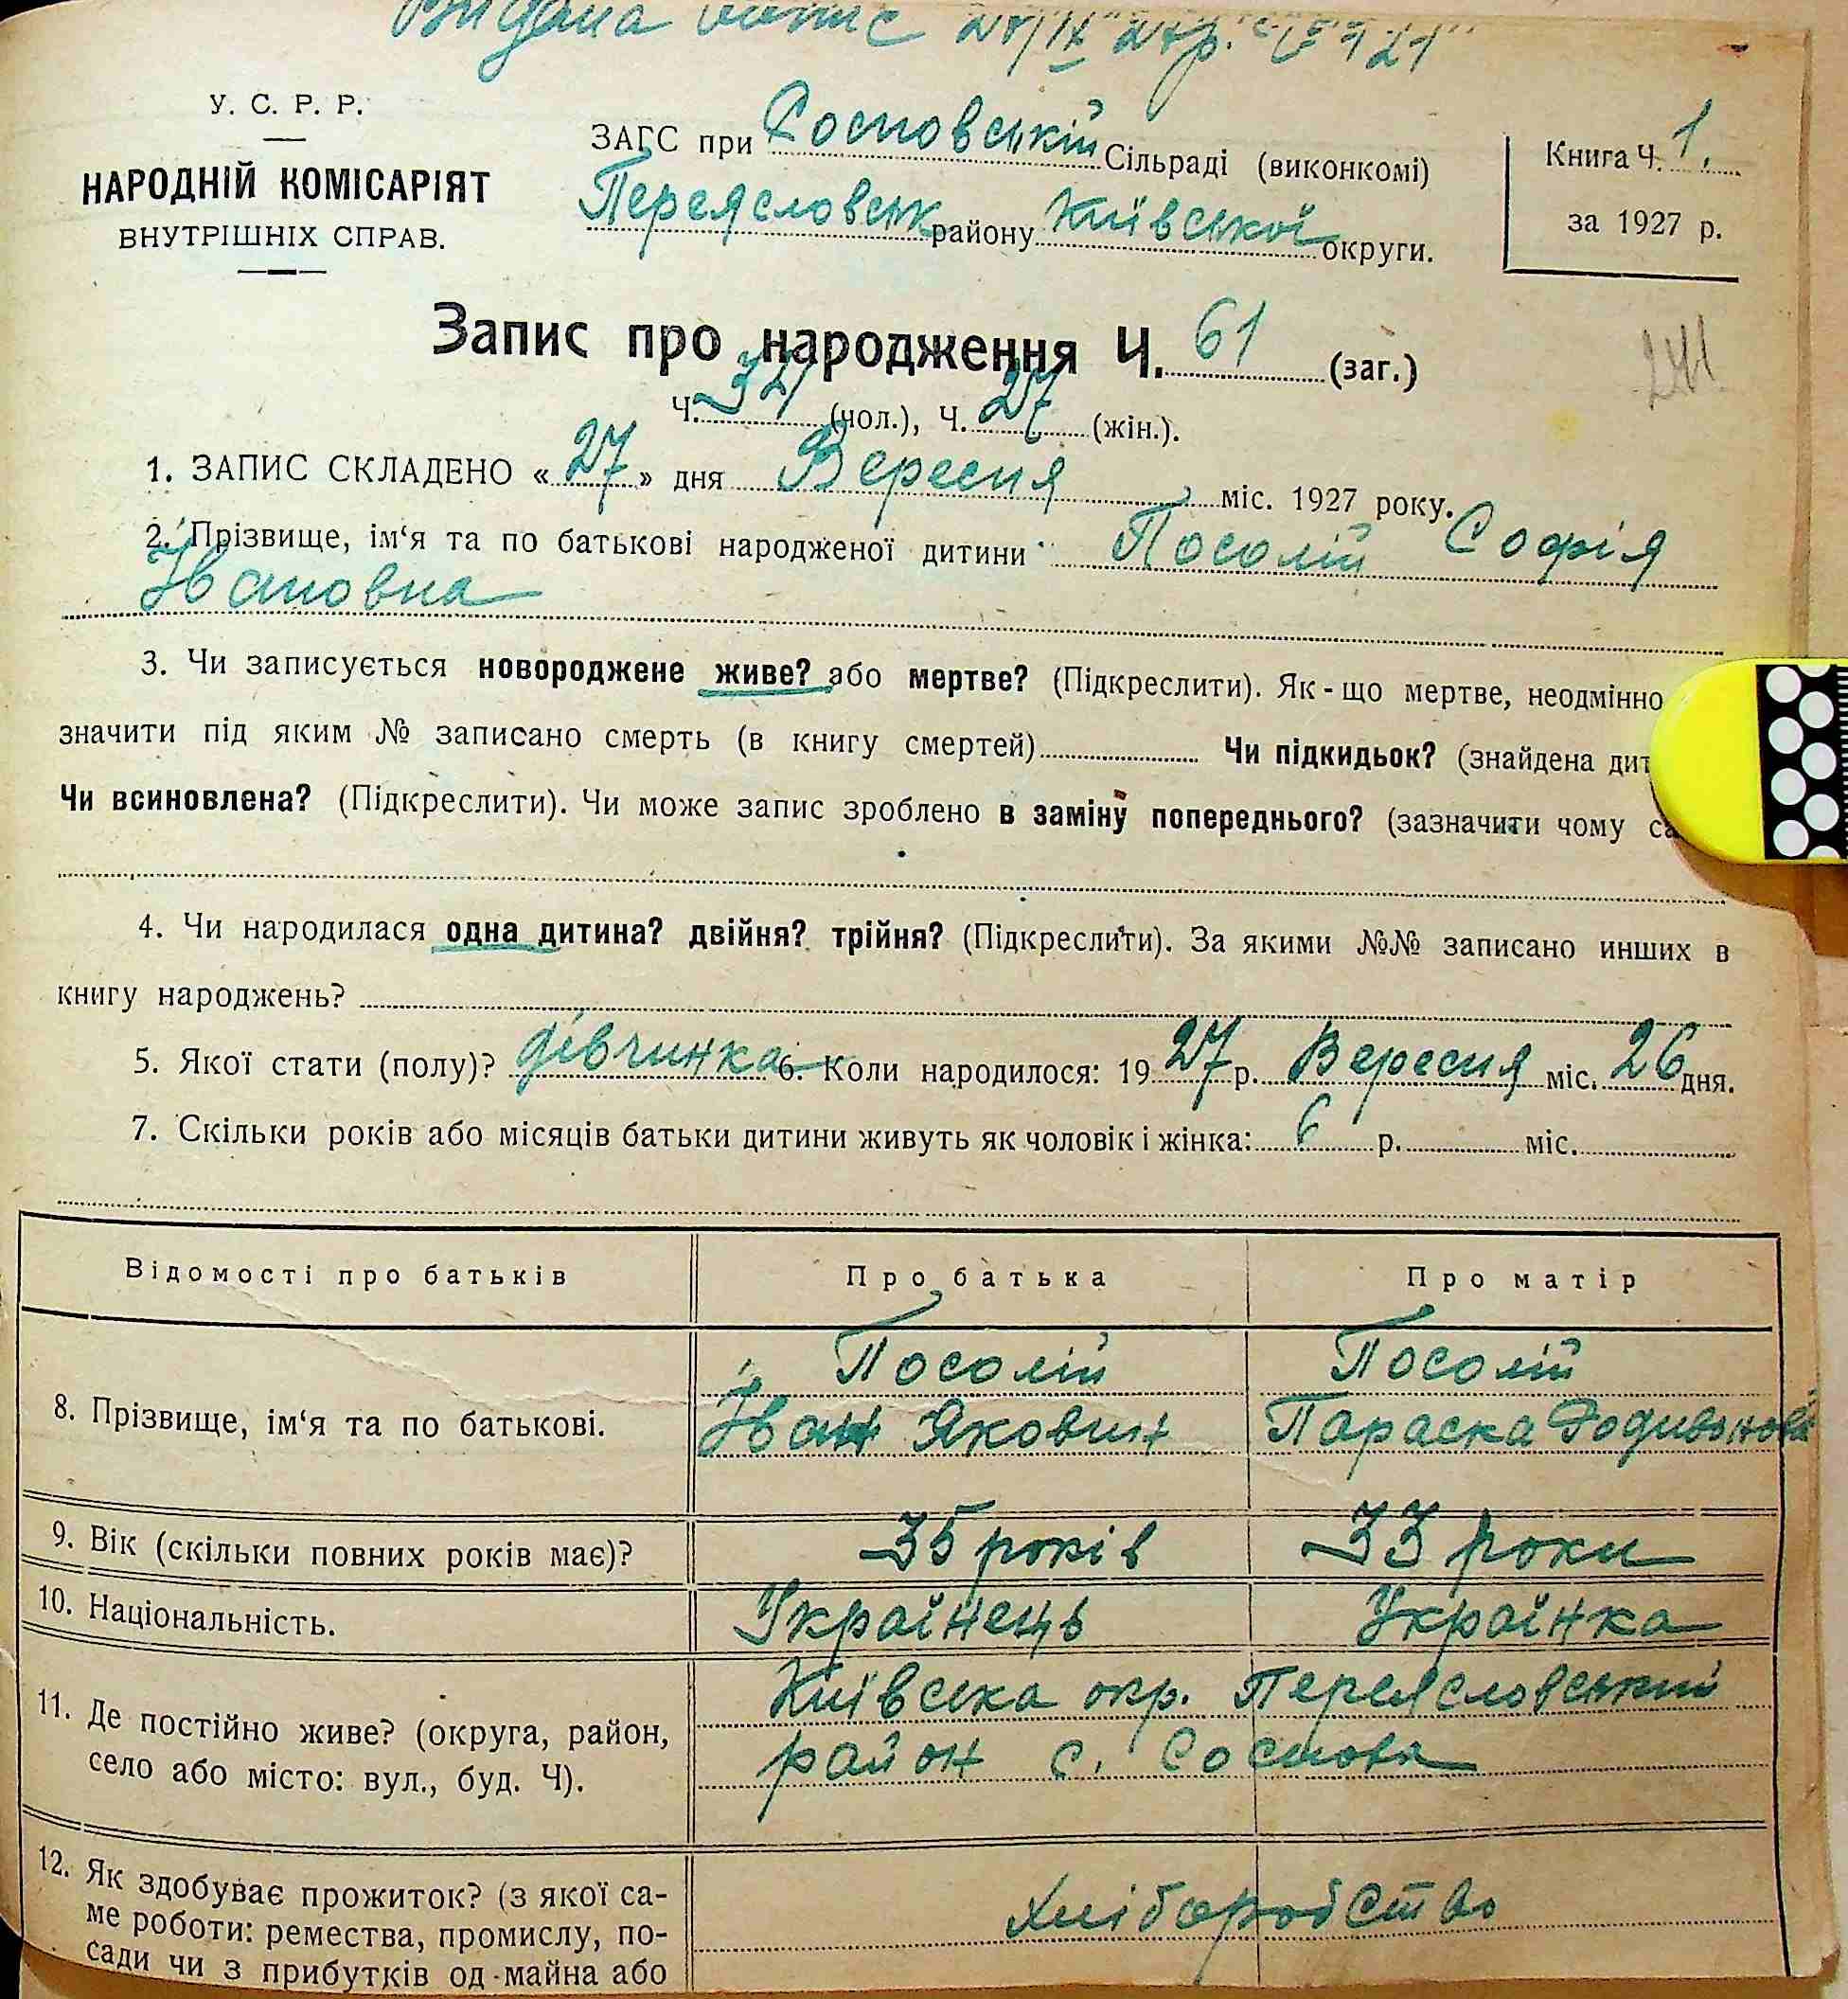 Видана випис 27/IX 27р.
У. С. Р. Р.
НАРОДНІЙ КОМІСАРІЯТ
ВНУТРІШНІХ СПРАВ.
ЗАГС при Сосновській Сільраді (виконкомі)
Переясловськ району Київської округи.
Книга Ч. 1.
за 1927 р.
Запис про народження Ч. 61 (заг.)
241
Ч. 34 (чол.), Ч. 27 (жін.).
1. ЗАПИС СКЛАДЕНО « 27 » дня Вересня міс. 1927 року.
2. Прізвище, ім‘я та по батькові народженої дитини Посолій Софія
Івановна
3. Чи записується новороджене живе? або мертве? (Підкреслити). Як-що мертве, неодмінно
значити під яким № записано смерть (в книгу смертей) Чи підкидьок? (знайдена дит
Чи всиновлена? (Підкреслити). Чи може запис зроблено в заміну попереднього? (зазначити чому са
4. Чи народилася одна дитина? двійня? трійня? (Підкреслити). За якими №№ записано инших в
книгу народжень?
5. Якої стати (полу)? дівчинка 6. Коли народилося: 19 27 р. Вересня міс. 26 дня.
7. Скільки років або місяців батьки дитини живуть як чоловік і жінка: 6 р. міс.
Відомості про батьків Про батька Про матір
8. Прізвище, ім‘я та по батькові.
Посолій
Іван Якович
Посолій
Параска Родивонов
9. Вік (скільки повних років має)? 35 років 33 роки
10. Національність. Українець Українка
11. Де постійно живе? (округа, район,
село або місто: вул., буд. Ч).
Київська окр. Переясловський
район с. Соснова
12. Як здобуває прожиток? (з якої са-
ме роботи: ремества, промислу, по-
сади чи з прибутків од майна або
хліборобство